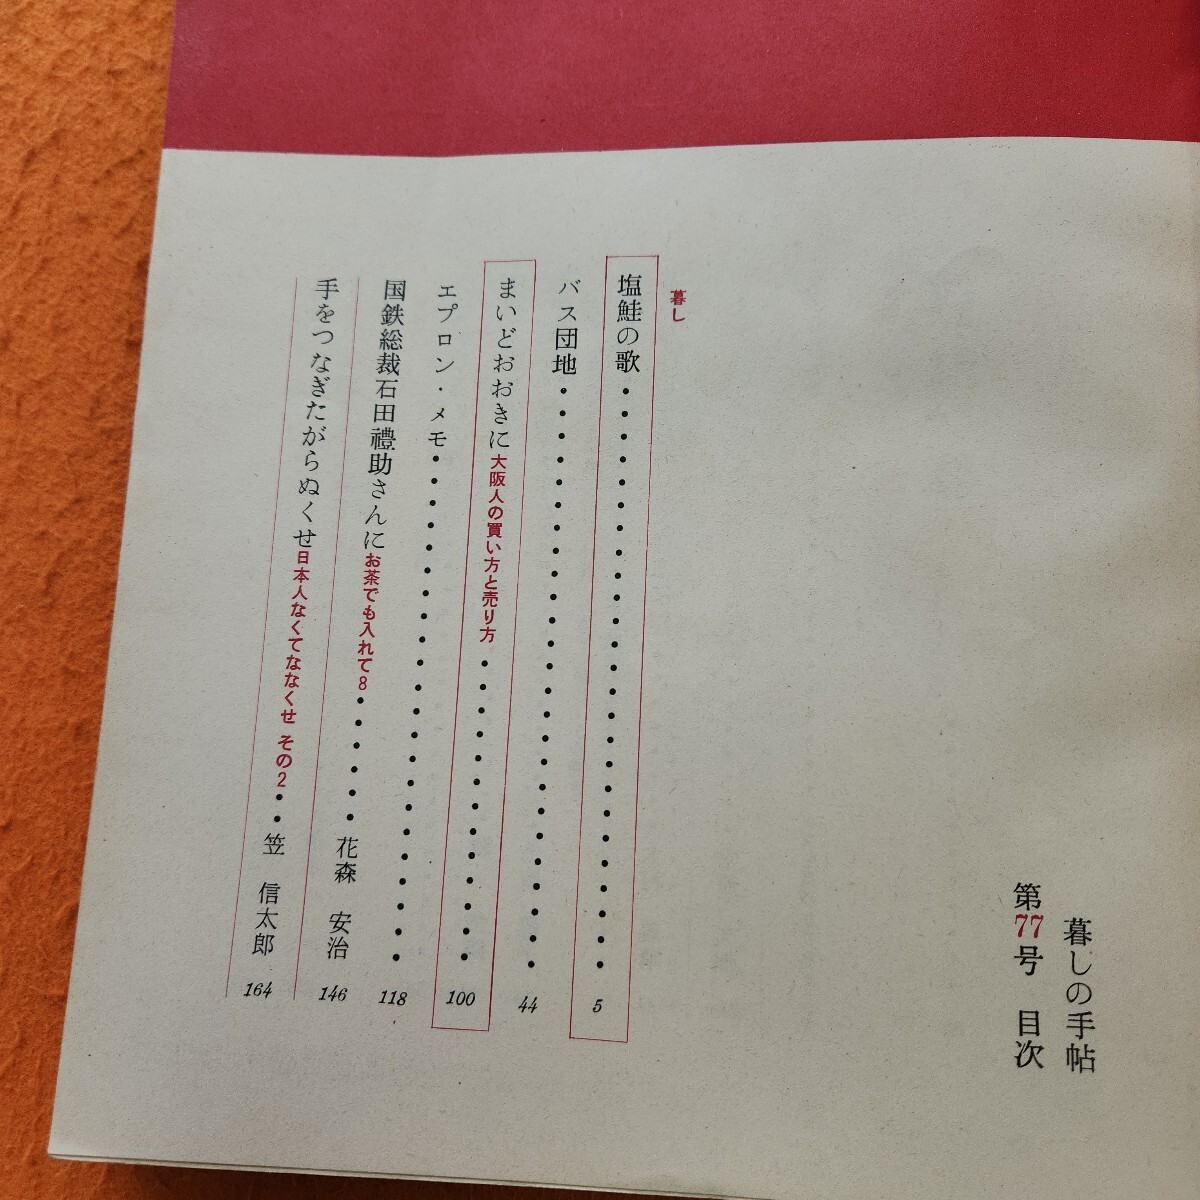 暮しの手帖
第77号 目次
暮し
塩鮭の歌・・・・・・・・・・・・・・・・・・・・・・・・・・5
バス団地・・・・・・・・・・・・・・・・・・・・・・・・・・44
まいどおおきに 大阪人の買い方と売り方・・・・・・・・・・・・・100
エプロン・メモ・・・・・・・・・・・・・・・・・・・・・・・118
国鉄総裁石田禮助さんに お茶でも入れて8・・・・・・花森 安治 146
手をつなぎたがらぬくせ 日本人なくてななくせ その2・・笠 信太郎 164